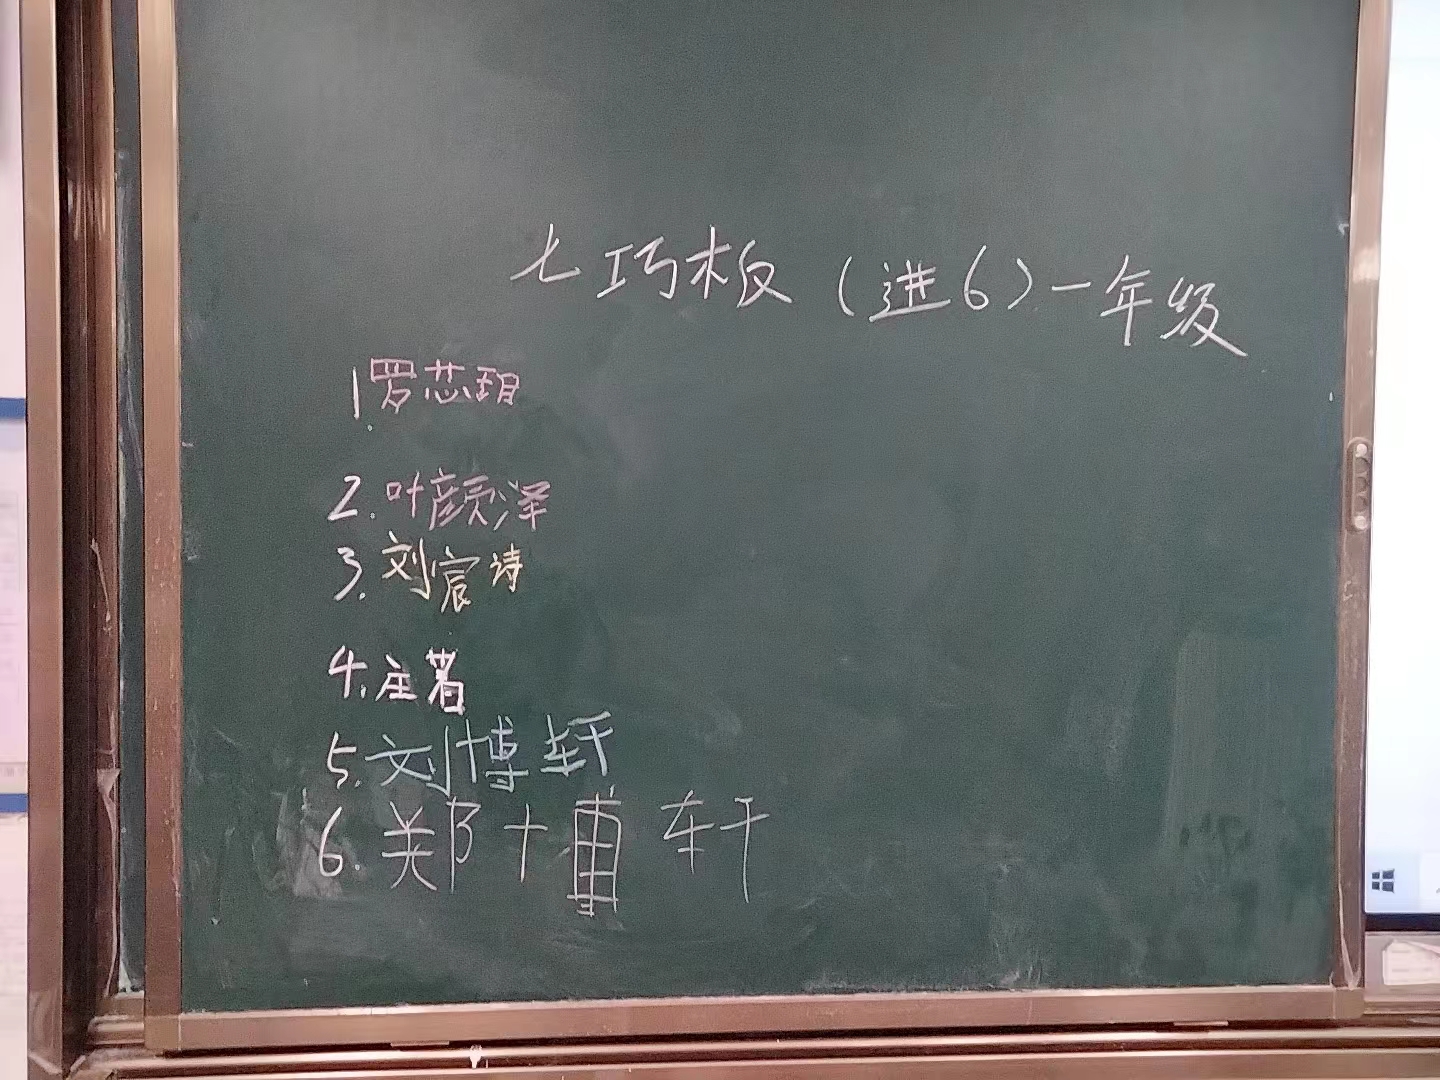 七巧板（进6）一年级
1.罗芯玥
2.叶颜泽
3.刘宸诗
4.主著
5.刘博轩
6.郑博轩